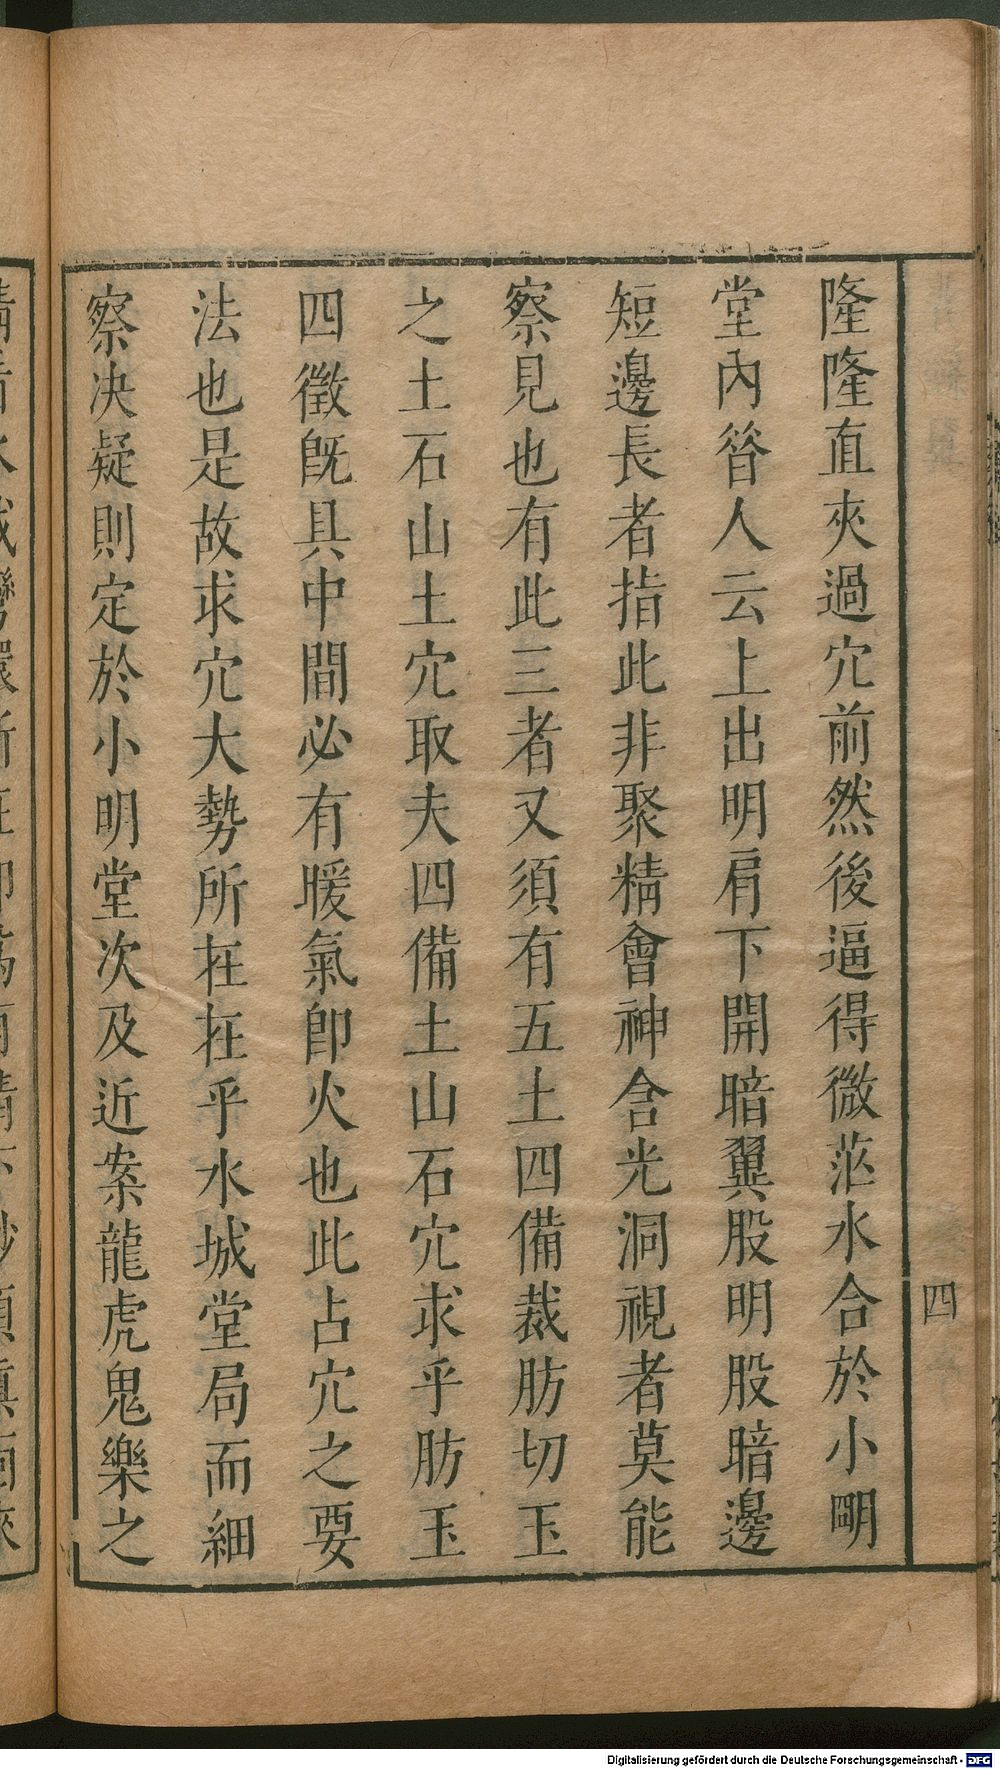 隆隆直夾過穴前然後逼得微茫水合於小明
堂內昝人云上出明肩下開暗翼股明股暗邊
短邊長者指此非聚精會神含光洞視者莫能
察見也有此三者又須有五土四備裁肪切玉
之土石山土穴取夫四備土山石穴求乎肪玉
四徵既具中間必有暖氣即火也此占穴之要
法也是故求穴大勢所在在乎水城堂局而細
察決疑則定於小明堂次及近案龍虎鬼樂之
四
Digitalisierung gefördert durch die Deutsche Forschungsgemeinschaft - DFG